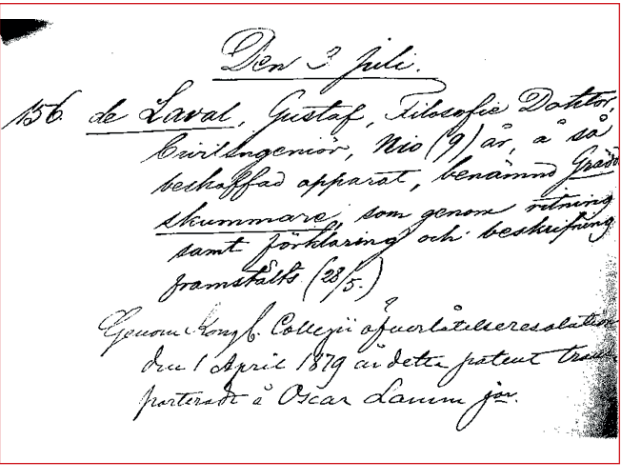 Den 3 juli.
156. de Laval, Gustaf, Filosofie Doktor,
Civilingeniör, Nio (9) år, å så
beskaffad apparat, benämnd Grädd
skummare, som genom ritning
samt förklaring och beskrifning
framstälts. (28/5.)
Genom Kongl. Collegii öfverlåtelseresolution
den 1 April 1879 är detta patent trans-
porteradt å Oscar Lamm jor.